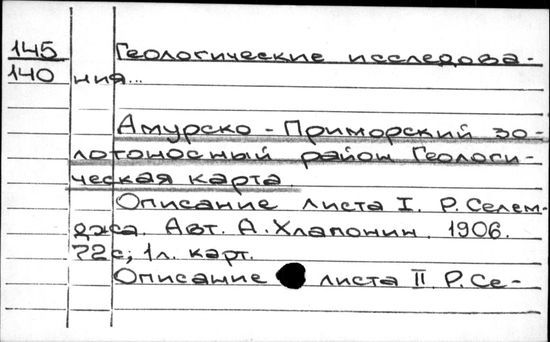 145 Геологические исследова-
140 ния...
Амурско-Приморский зо-
лотоносный район Геологи-
ческая карта.
Описание листа I. Р. Селем-
джа. Авт. А. Хлапонин. 1906.
72с; 1л. карт.
Описание листа II Р. Се-